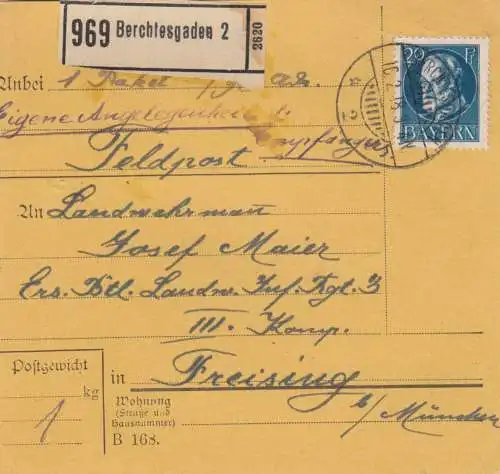 969 Berchtesgaden 2
2620
20 Pf
BAYERN
Anbei 1 Paket
Eigene Angelegenheit d.
Empfängers
Feldpost
An Landwehrmann
Josef Maier
Ers. Btl. Landw. Inf. Rgt. 3
III. Komp.
Postgewicht
kg
1
in Freising
b/München
Wohnung
(Straße und
Hausnummer)
B 168.